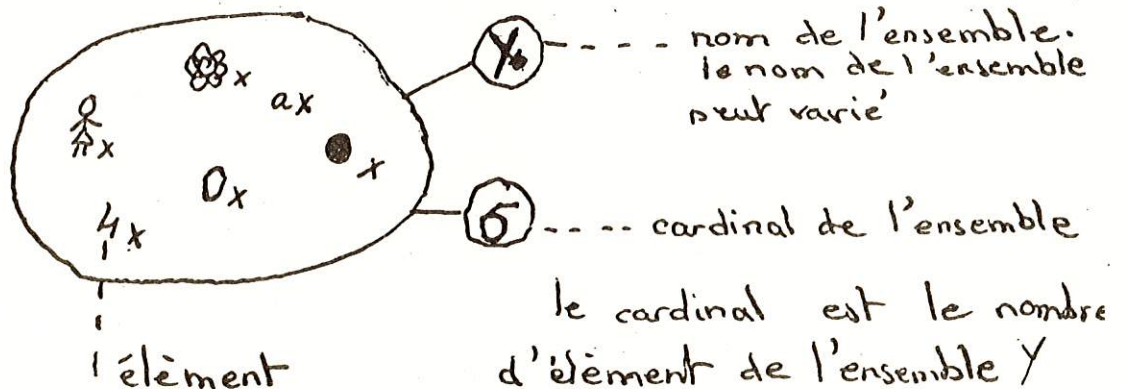 Y
nom de l'ensemble.
le nom de l'ensemble
peut varié
x
ax
x
x
0x
4x
6
cardinal de l'ensemble
le cardinal est le nombre
d'élèment de l'ensemble Y
l'élèment